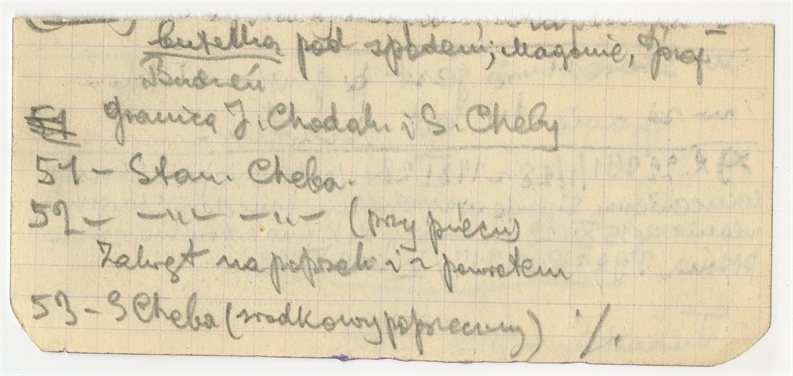 butelka pod spodem; Magonie, Graj-
Budzeń
51 Granica J. Chodak. i S. Cheby
51 – Stan. Cheba.
52 – –"– –"– (przy piecu)
Zakręt na poprzek i z powrotem
53 – S Cheba (środkowy poprzeczny) ·/.